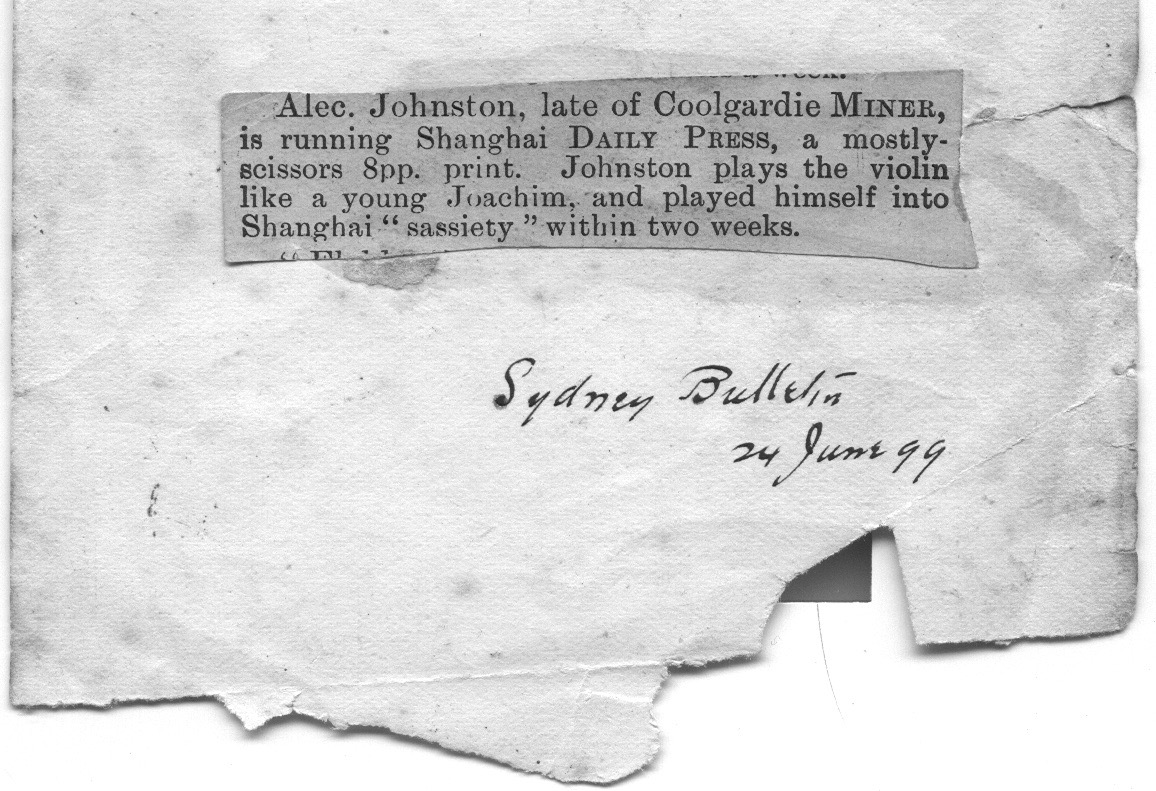 a week.
Alec. Johnston, late of Coolgardie MINER,
is running Shanghai DAILY PRESS, a mostly-
scissors 8pp. print. Johnston plays the violin
like a young Joachim, and played himself into
Shanghai “ sassiety ” within two weeks.
Sydney Bulletin
24 June 99